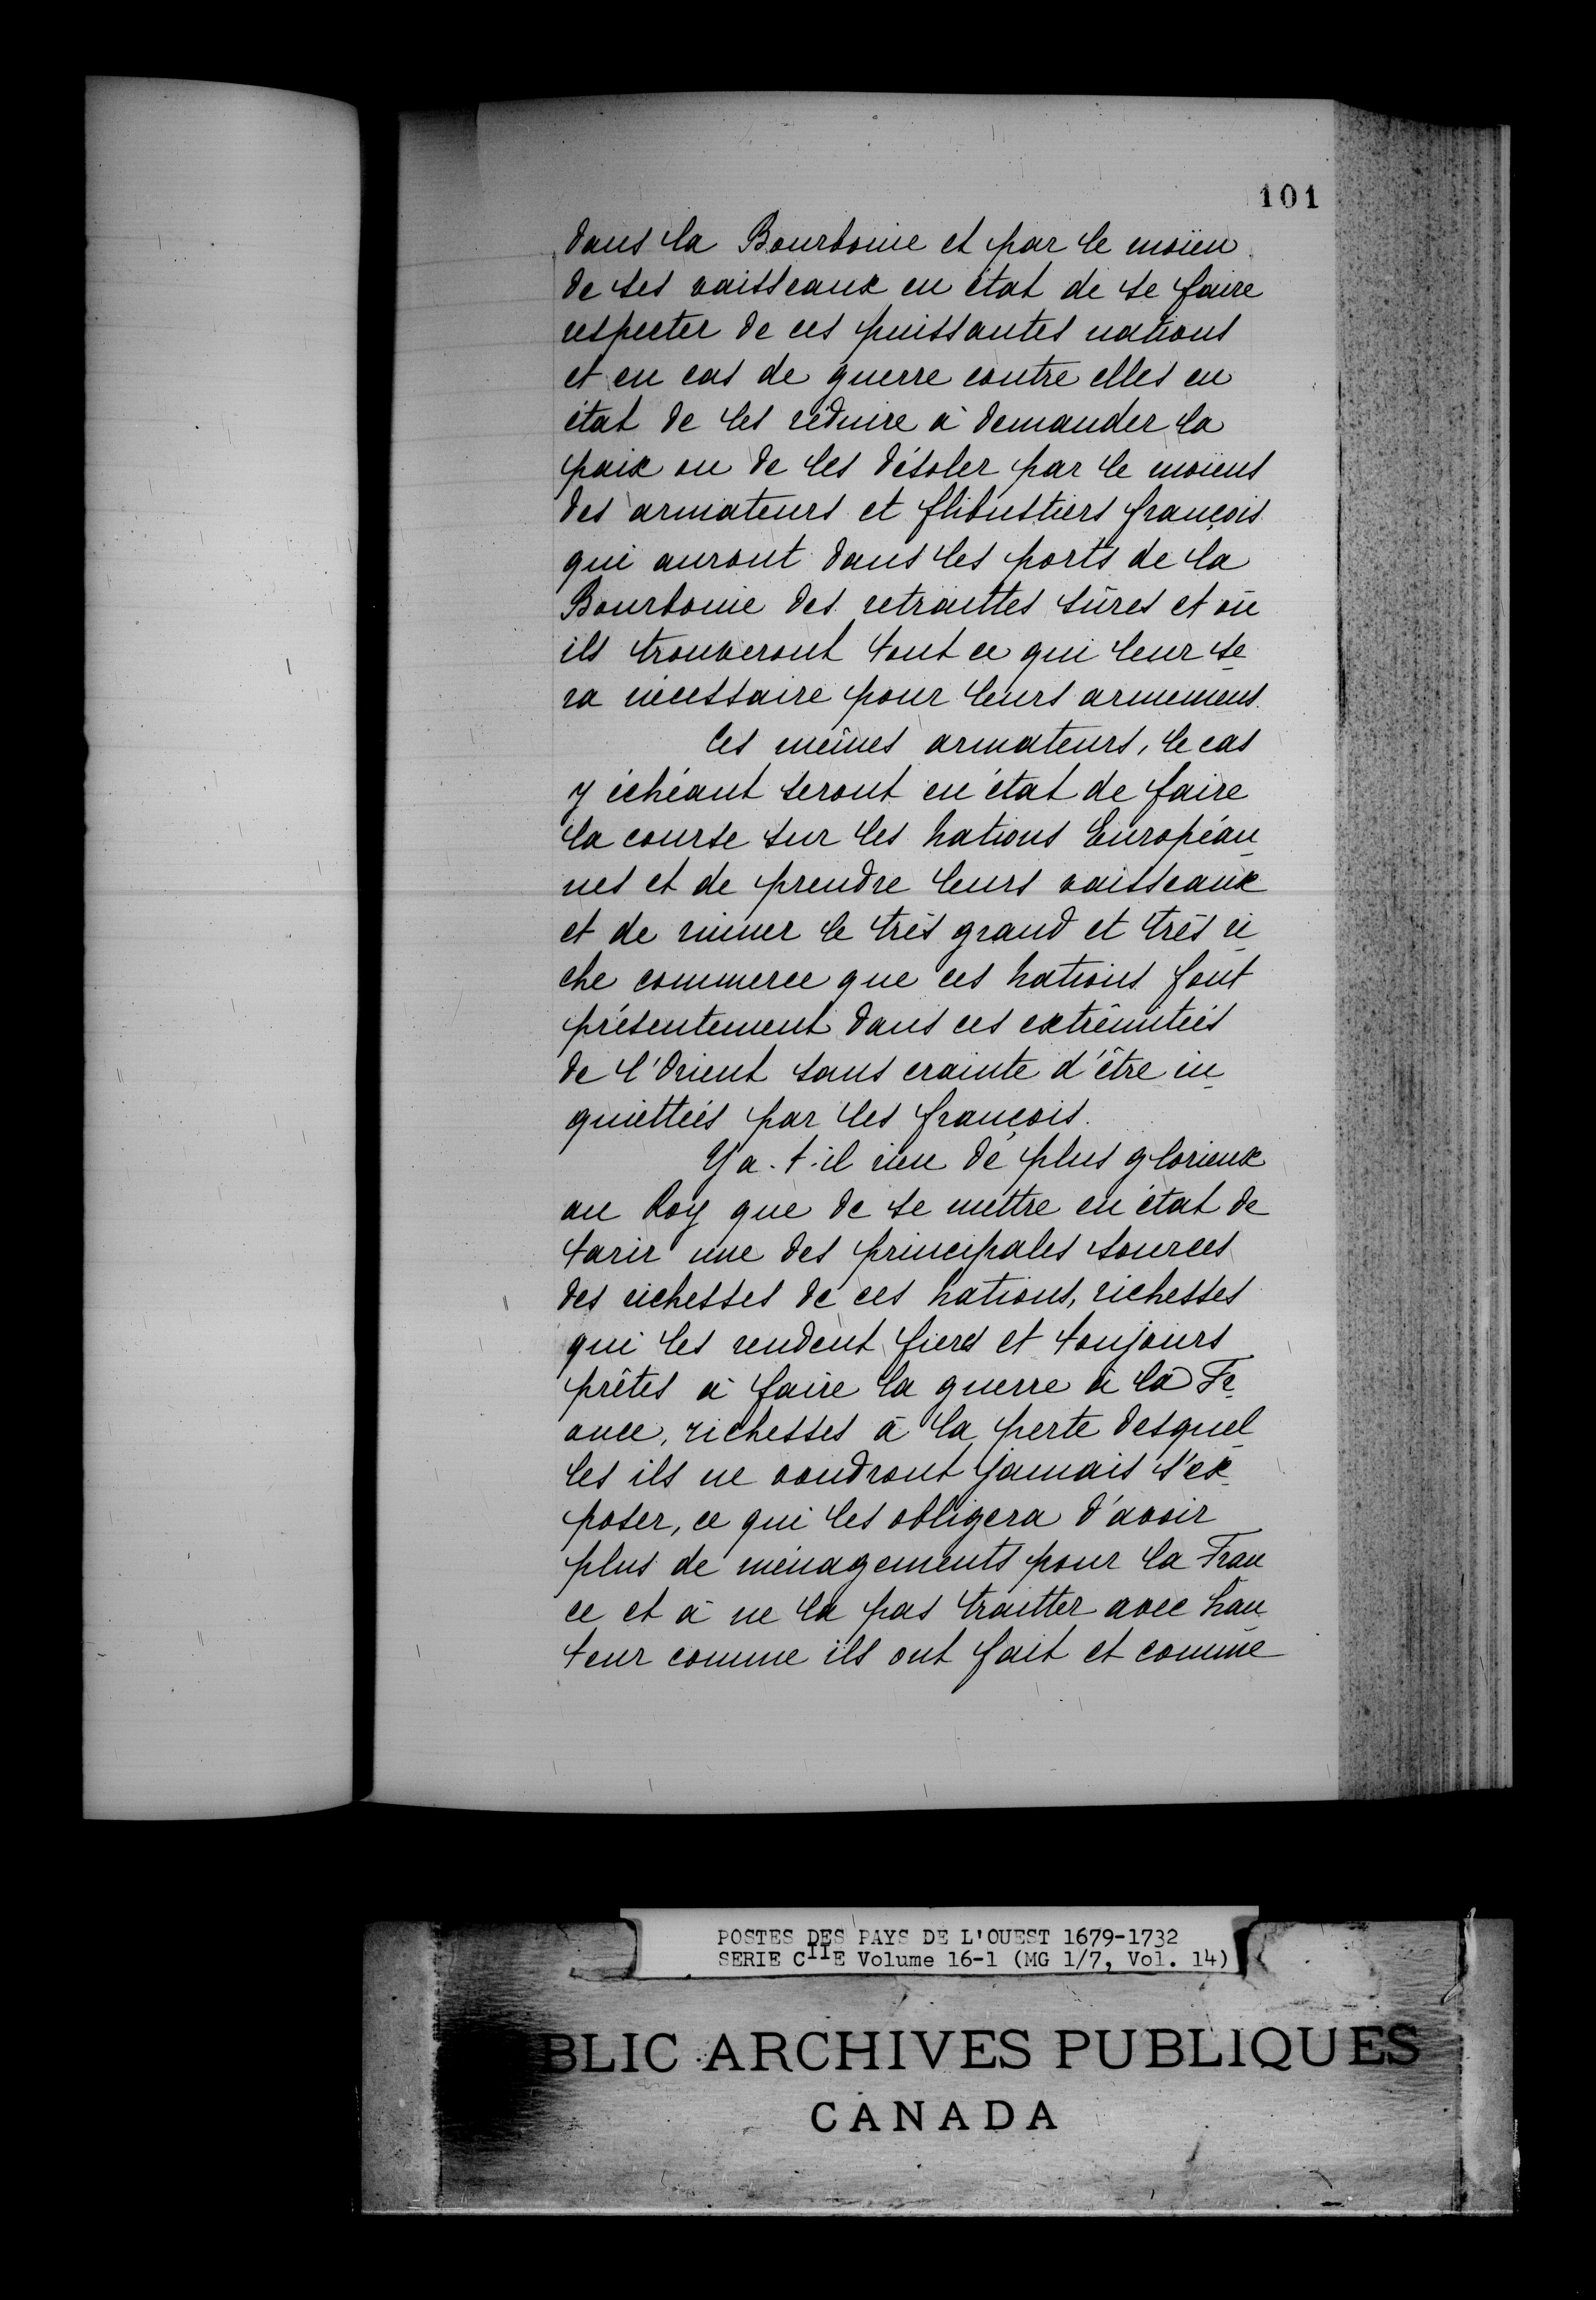 101
dans la Bourbonie et par le moïen
de ses vaisseaux en état de se faire
respecter de ces puissantes nations
et en cas de guerre contre elles en
état de les réduire à demander la
paix ou de les désoler par le moïens
des armateurs et flibustiers françois
qui auront dans les ports de la
Bourbonie des retraittes sûres et où
ils trouveront tout ce qui leur se
ra nécessaire pour leurs armemens.
Ces mêmes armateurs, le cas
y échéant seront en état de faire
la course sur les nations Européan
nes et de prendre leurs vaisseaux
et de ruiner le très grand et très ri
che commerce que ces nations font
présentement dans ces extrêmitéés
de l'Orient sans crainte d'être in
quiettéés par les françois.
Y a-t-il rien de plus glorieux
au Roy que de se mettre en état de
tarir une des principales sources
des richesses de ces nations, richesses
qui les rendent fieres et toujours
prêtes à faire la guerre à la Fr
ance, richesses à la perte desquel
les ils ne voudront jamais s'ex
poser, ce qui les obligera d'avoir
plus de ménagements pour la Fran
ce et à ne la pas traitter avec hau
teur comme ils ont fait et comme
POSTES DES PAYS DE L'OUEST 1679-1732
SERIE CIIE Volume 16-1 (MG 1/7, Vol. 14)
BLIC ARCHIVES PUBLIQUES
CANADA